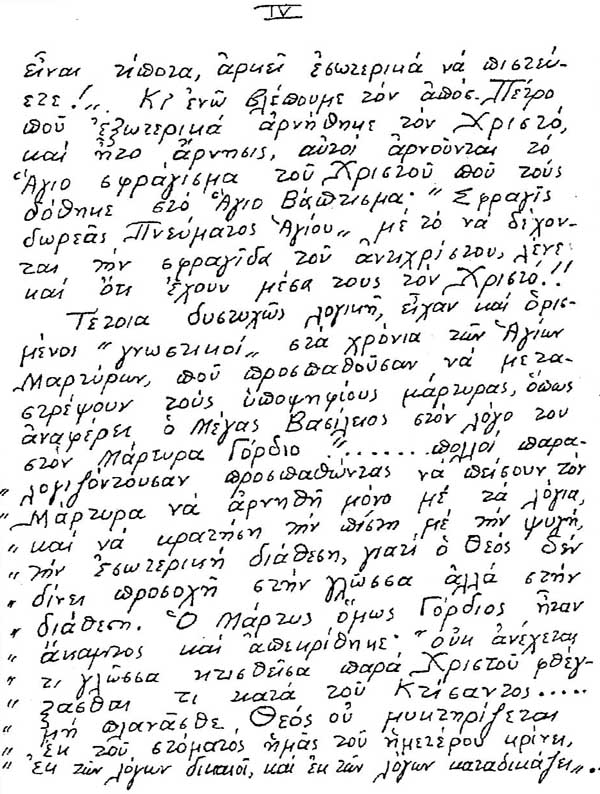 IV
εἶναι τίποτα, ἀρκεῖ ἐσωτερικά νά πιστεύ-
ετε!„ Κι ἐνῶ βλέπουμε τόν ἀπόσ. Πέτρο
πού ἐξωτερικά ἀρνήθηκε τόν Χριστό,
καί ἦτο ἄρνησις, αὐτοί ἀρνοῦνται τό
Ἅγιο σφράγισμα τοῦ Χριστοῦ πού τούς
δόθηκε στό Ἅγιο Βάπτισμα· "Σφραγῖς
δωρεᾶς Πνεύματος Ἁγίου„ μέ τό νά δέχον-
ται τήν σφραγῖδα τοῦ ἀντιχρίστου, λένε
καί ὅτι ἔχουν μέσα τους τόν Χριστό!!
Τέτοια δυστυχῶς λογική, εἶχαν καί ὁρισ-
μένος "γνωστικοί„ στά χρόνια τῶν Ἁγίων
Μαρτύρων, πού προσπαθοῦσαν νά μετα-
στρέψουν τούς ὑποψηφίους μάρτυρας, ὅπως
ἀναφέρει ὁ Μέγας Βασίλειος στόν λόγο του
στόν Μάρτυρα Γόρδιο "........πολλοί παρα-
„ λογιζόντουσαν προσπαθώντας νά πείσουν τόν
„ Μάρτυρα νά ἀρνηθῆ μόνο μέ τά λόγια,
„ καί νά κρατήση τήν πίστη μέ τήν ψυχή,
„ τήν ἐσωτερική διάθεση, γιατί ὁ Θεός δέν
„ δίνει προσοχή στήν γλῶσσα ἀλλά στήν
„ διάθεση. Ὁ Μάρτυς ὅμως Γόρδιος ἦταν
„ ἄκαμπτος καί ἀπεκρίθηκε· "οὐκ ἀνέχεται
„ τι γλῶσσα κτισθεῖσα παρά Χριστοῦ φθέγ-
„ ξασθαι τι κατά τοῦ Κτίσαντος.....
„ μή πλανᾶσθε, Θεός οὐ μυκτηρίζεται
„ ἐκ τοῦ στόματος ἡμᾶς τοῦ ἡμετέρου κρίνει,
„ ἐκ τῶν λόγων δικαιοῖ, καί ἐκ τῶν λόγων καταδικάζει„..